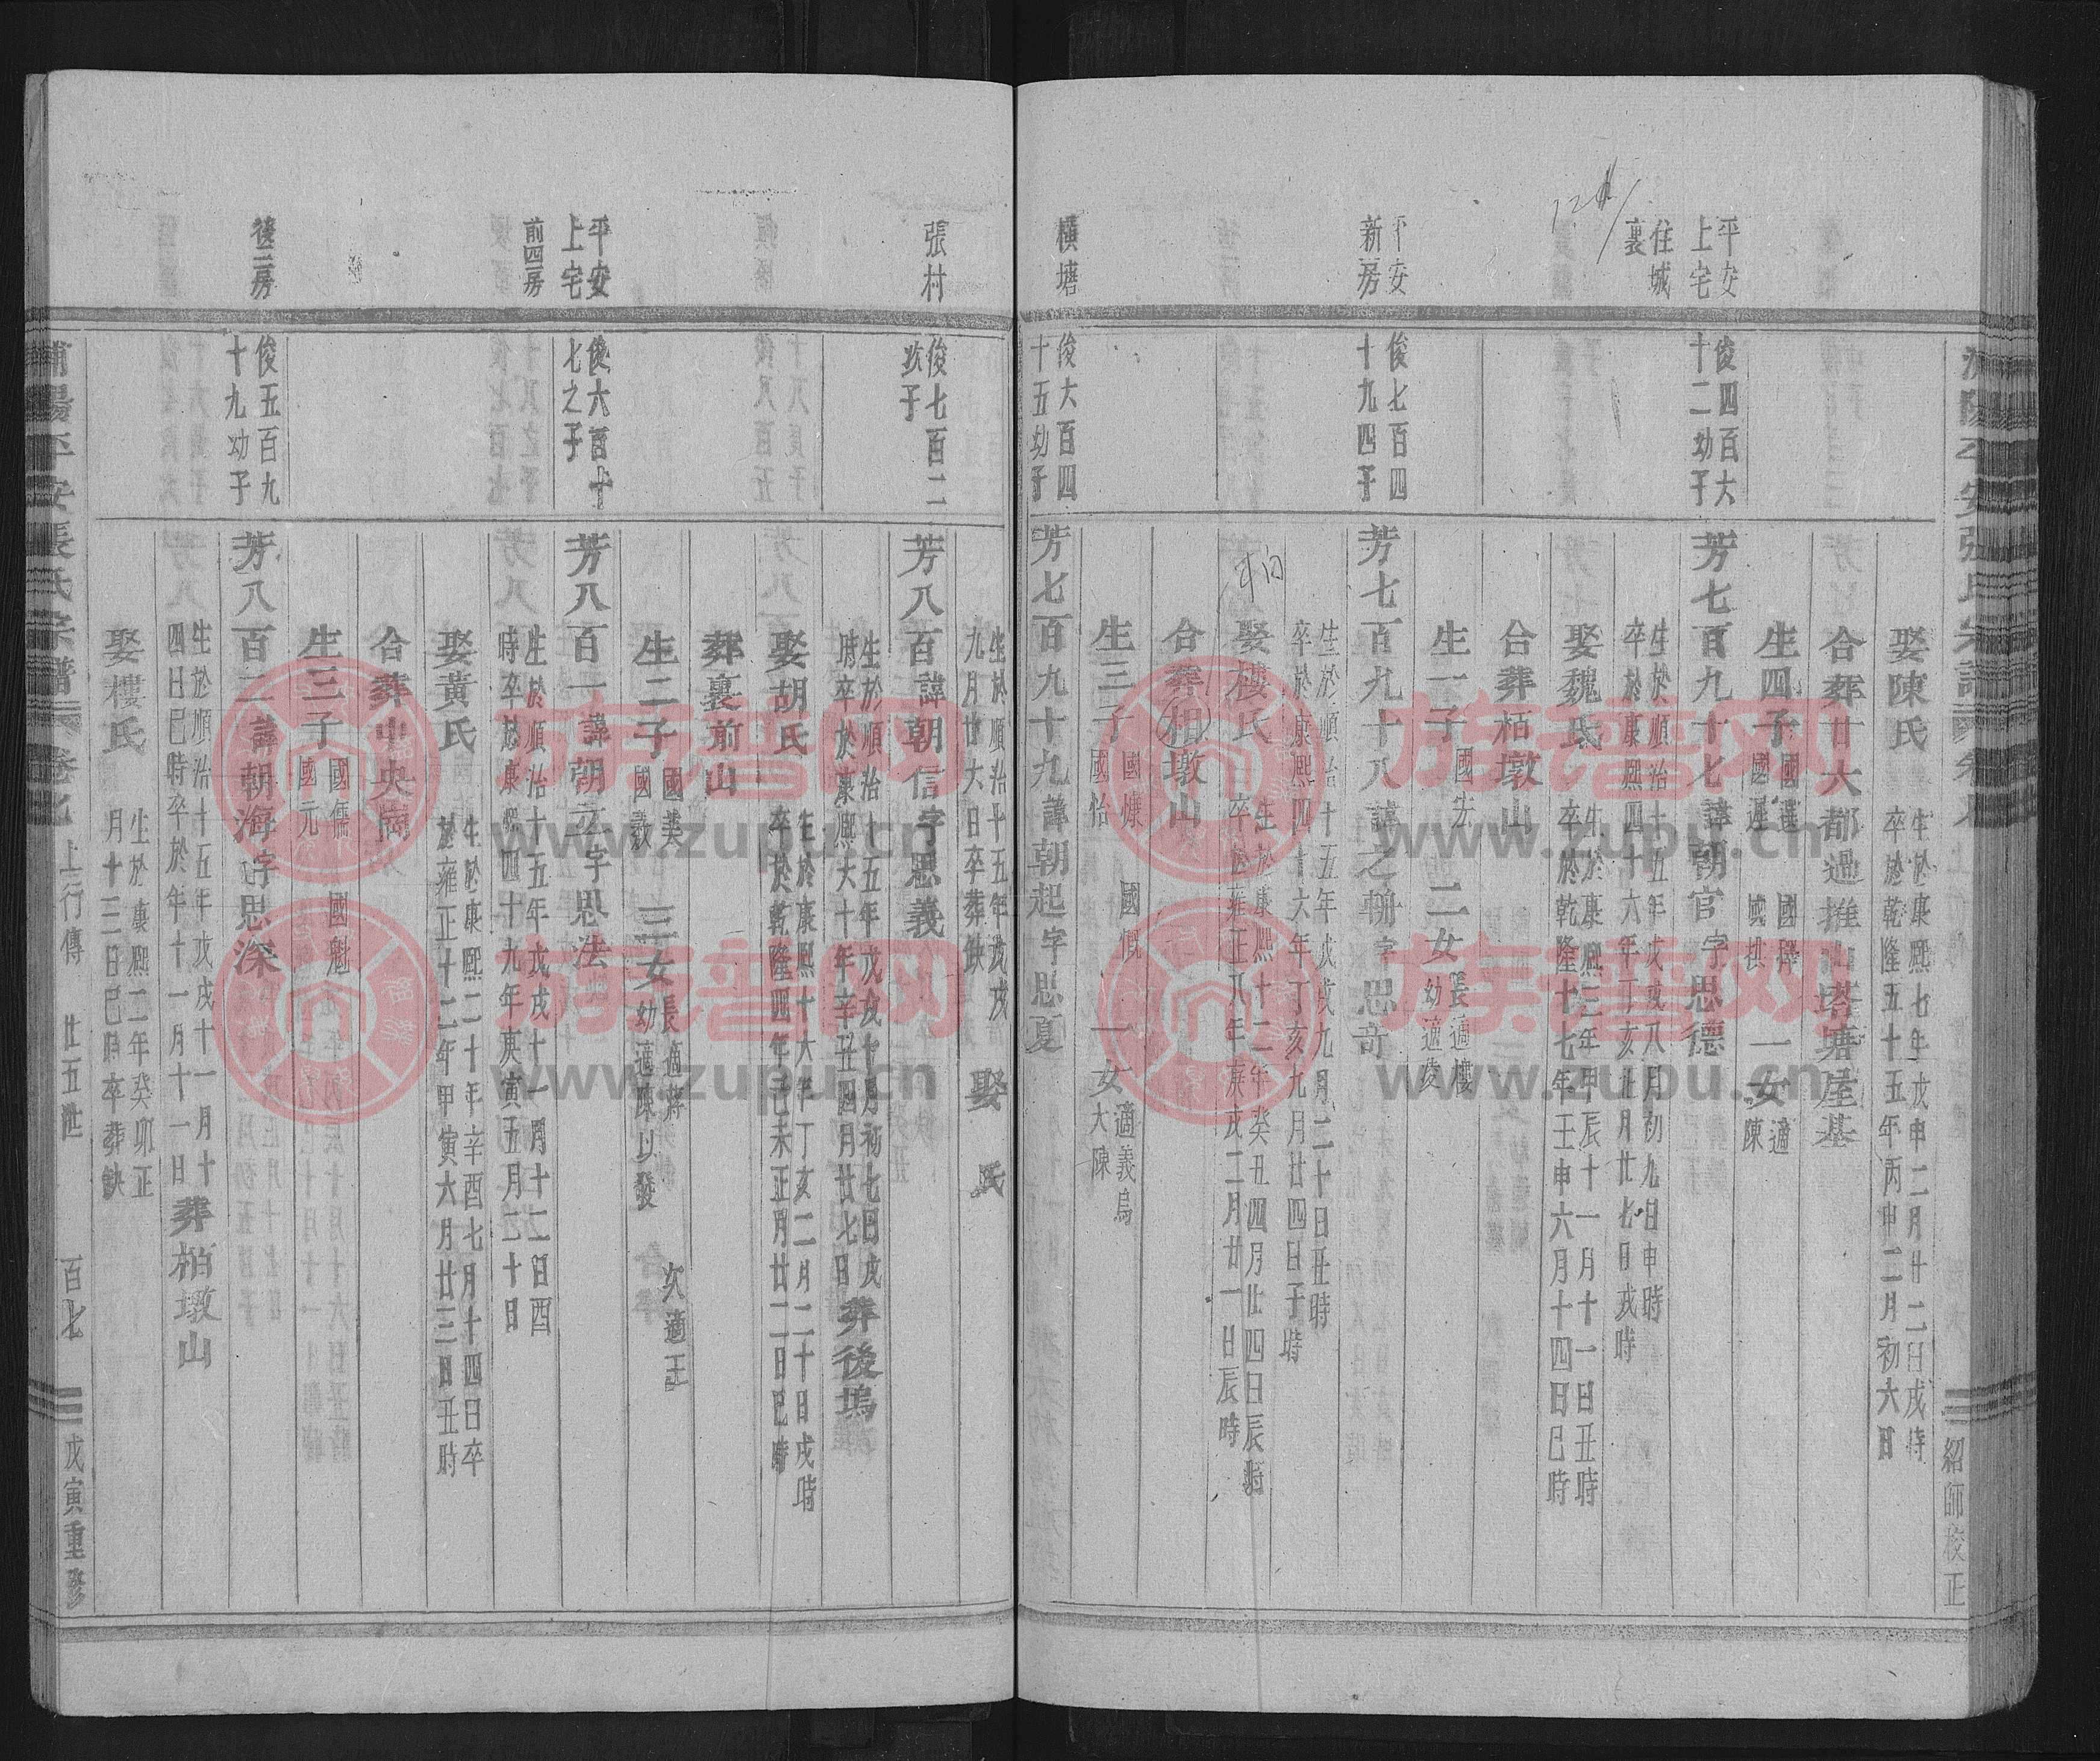 平安
上宅
住城
裏
俊四百六
十二幼子
娶陳氏
生於康熙七年戊申二月廿二日戌時
卒於乾隆五十五年丙申二月初六日
合葬廿六都過推山塔塘屋基
生四子
國選
國運
國擇
國拱
一女
適
陳
芳七百九十七諱朝官字思德
生於順治十五年戊戌八月初九日申時
卒於康熙四十六年丁亥廿月廿七日戌時
娶魏氏
生於康熙三年甲辰十一月十一日丑時
卒於乾隆十七年壬申六月十四日巳時
合葬栢墩山
生一子
國宏
二女
長適樓
幼適凌
平安
新房
俊七百四
十九四子
芳七百九十八諱之翰字思奇
生於順治十五年戊戌九月二十日丑時
卒於康熙四十六年丁亥九月廿四日子時
娶樓氏
生於康熙十二年癸丑四月廿四日辰時
卒於雍正八年庚戌二月廿一日辰時
合葬栢墩山
生三子
國爍
國怡
國慨
一女
適義烏
大陳
橫塘
俊六百四
十五幼子
芳七百九十九諱朝起字思夏
生於順治十五年戊戌
九月廿六日卒葬缺
娶 氏
張村
俊七百二
次子
芳八百諱朝信字思義
生於順治十五年戊戌七月初七日戌
時卒於康熙六十年辛丑四月廿七日
葬後塢
娶胡氏
生於康熙十六年丁亥二月二十日戌時
卒於乾隆四年己未正月廿二日巳時
葬裏前山
生二子
國美
國敎
三女
長適蔣
次適王
幼適陳以發
平安
上宅
前四房
俊六百十
七之子
芳八百一諱朝立字思法
生於順治十五年戊戌十一月十二日酉
時卒於康熙四十九年庚寅五月二十日
娶黃氏
生於康熙二十年辛酉七月十四日卒
於雍正十二年甲寅六月廿三日丑時
合葬中央崗
生三子
國儒
國元
國魁
後二房
俊五百九
十九幼子
芳八百二諱朝海字思深
生於順治十五年戊戌十一月十
四日巳時卒於年十一月十一日
葬栢墩山
娶樓氏
生於康熙二年癸卯正
月十三日巳時卒葬缺
浦陽平安張氏宗譜
卷之
上行傳
廿五世
百七
戊寅重修
紹師校正
族谱网
www.zupu.cn
族谱网
www.zupu.cn
族谱网
www.zupu.cn
族谱网
www.zupu.cn